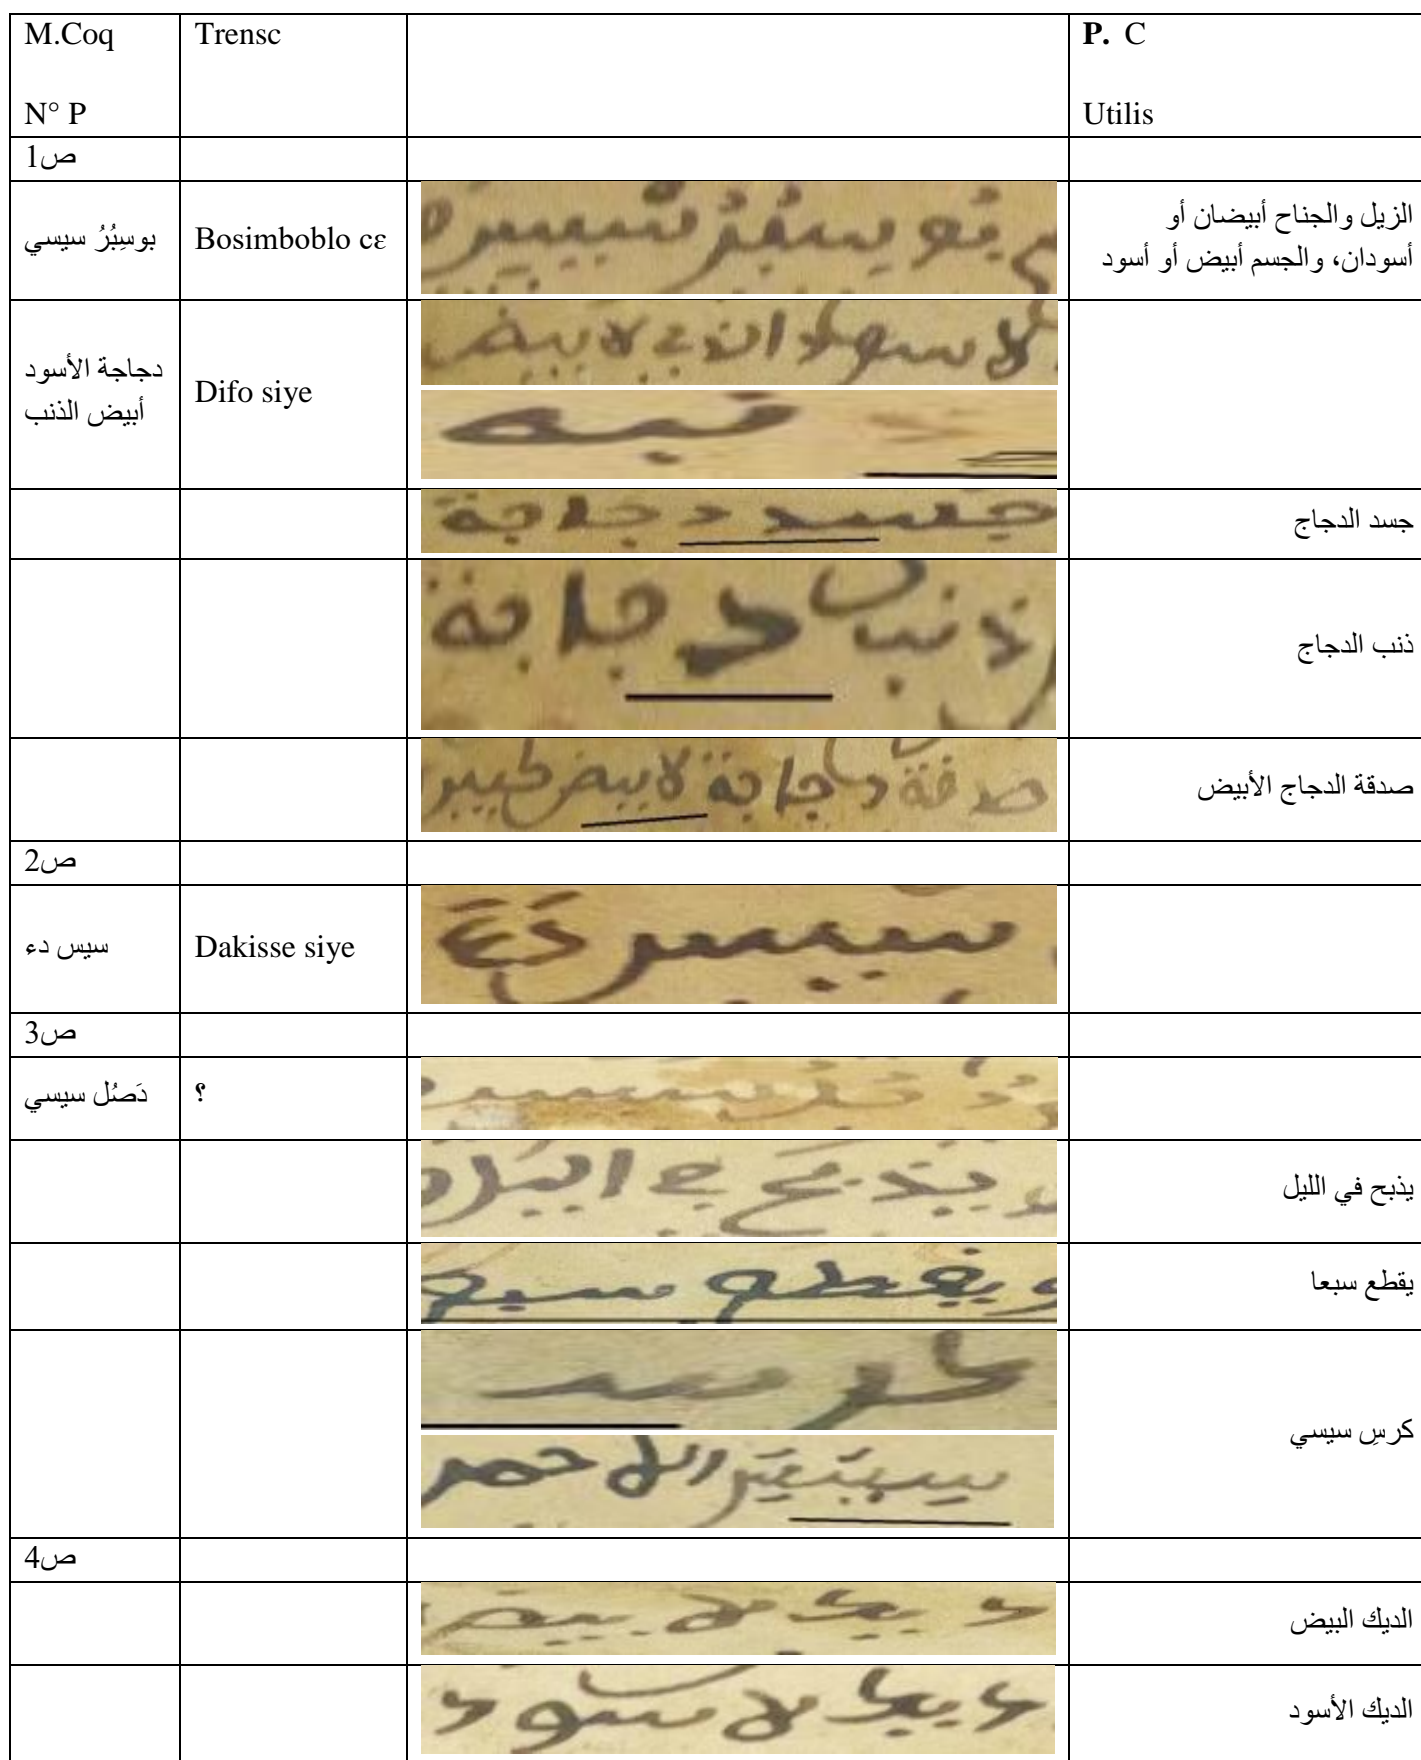 M.Coq
N° P
Trensc
P. C
Utilis
ص1
بوسِبُرُ سيسي
Bosimboblo cɛ
الزيل والجناح أبيضان أو
أسودان، والجسم أبيض أو أسود
دجاجة الأسود
أبيض الذنب
Difo siye
لاسود الذى لابيض
فيه
جسد دجاجة
جسد الدجاج
ذنب دجاجة
ذنب الدجاج
صدقة دجاجة لابيض كبير
صدقة الدجاج الأبيض
ص2
سيس دء
Dakisse siye
ص3
دَصُل سيسي
؟
يذبح في اليل
يذبح في الليل
ويقطع سبع
يقطع سبعا
كرسِ سيسي
الاحمر
ص4
ديك لابيض
الديك البيض
ديك لاسود
الديك الأسود